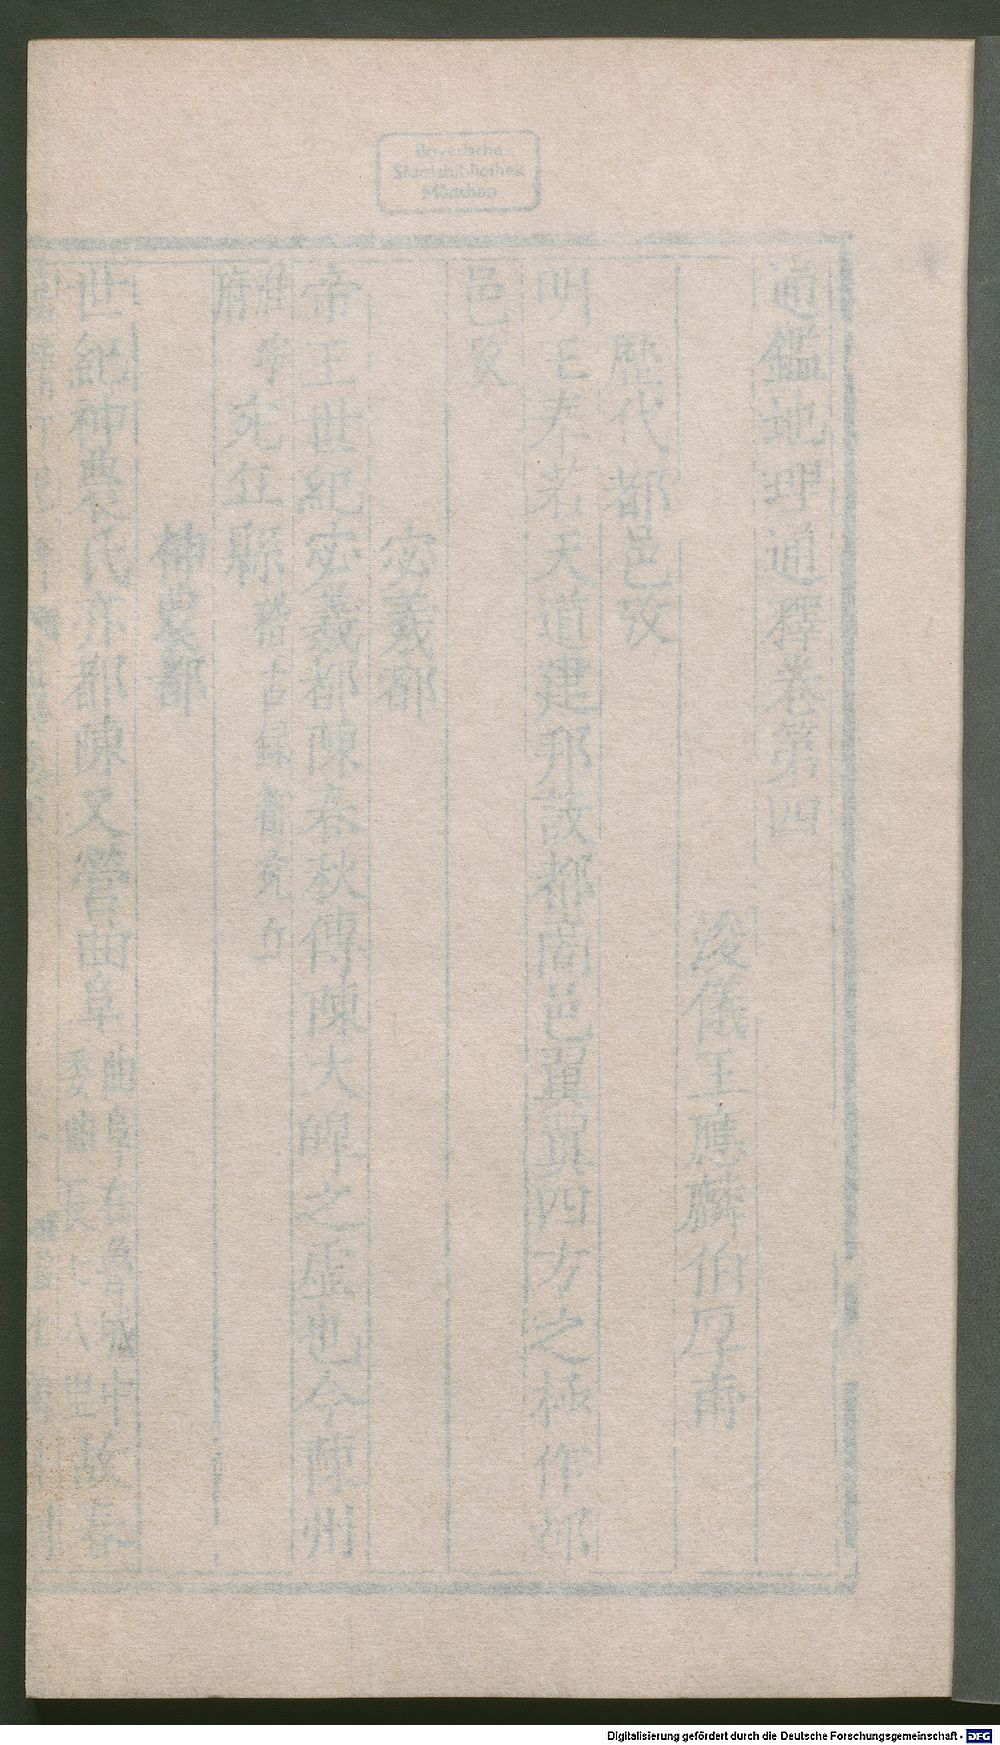 Bayerische
Staatsbibliothek
München
通鑑地理通釋卷第四
浚儀王應麟伯厚甫
歷代都邑攷
明王奉若天道建邦設都商邑翼翼四方之極作都
邑攷
宓羲都
帝王世紀宓羲都陳春秋傳陳大皥之虛也今陳州
淮寧
府
宛丘縣 稽古録都宛丘
神農都
世紀神農氏亦都陳又營曲阜 曲阜在魯城中
委曲長七八里
故
Digitalisierung gefördert durch die Deutsche Forschungsgemeinschaft - DFG